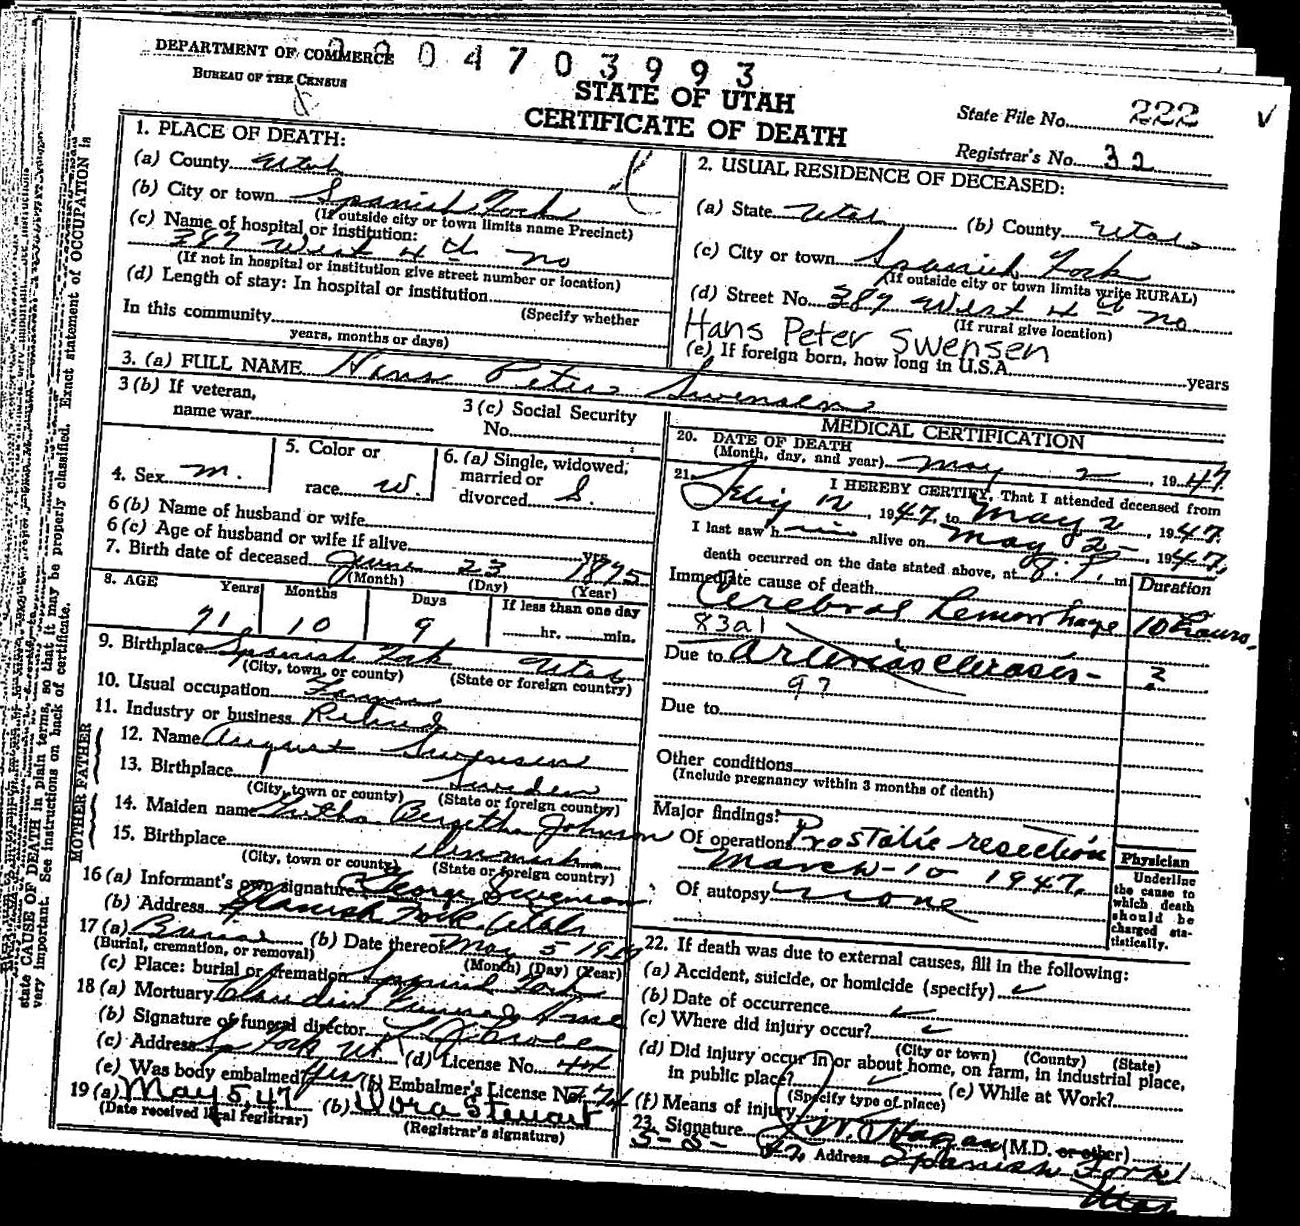 DEPARTMENT OF COMMERCE
BUREAU OF THE CENSUS
04703993
STATE OF UTAH
CERTIFICATE OF DEATH
State File No. 222
Registrar's No. 32
1. PLACE OF DEATH:
(a) County Utah
(b) City or town Spanish Fork
(If outside city or town limits name Precinct)
(c) Name of hospital or institution:
387 West 4th no
(If not in hospital or institution give street number or location)
(d) Length of stay: In hospital or institution
(Specify whether
In this community
years, months or days)
2. USUAL RESIDENCE OF DECEASED:
(a) State Utah (b) County Utah
(c) City or town Spanish Fork
(If outside city or town limits write RURAL)
(d) Street No. 387 West 4th no
(If rural give location)
Hans Peter Swensen
(e) If foreign born, how long in U.S.A. years
3. (a) FULL NAME Hans Peter Swensen
3 (b) If veteran,
name war
3 (c) Social Security
No.
4. Sex m.
5. Color or
race w.
6. (a) Single, widowed,
married or
divorced S.
6 (b) Name of husband or wife
6 (c) Age of husband or wife if alive yrs.
7. Birth date of deceased June 23 1875
(Month) (Day) (Year)
8. AGE Years Months Days If less than one day
71 10 9 hr. min.
9. Birthplace Spanish Fork Utah
(City, town, or county) (State or foreign country)
10. Usual occupation Farmer
11. Industry or business Retired
FATHER
12. Name August Swensen
13. Birthplace Sweden
(City, town or county) (State or foreign country)
MOTHER
14. Maiden name Bergitha Johnson
15. Birthplace Denmark
(City, town or county) (State or foreign country)
16 (a) Informant's own signature George Swenson
(b) Address Spanish Fork Utah
17 (a) Burial (b) Date thereof May 5 1947
(Burial, cremation, or removal) (Month) (Day) (Year)
(c) Place: burial or cremation Spanish Fork
18 (a) Mortuary Claudin Funeral Home
(b) Signature of funeral director
(c) Address Sp Fork Ut. (d) License No. 44
(e) Was body embalmed? Yes (f) Embalmer's License No.
19 (a) May 5, 47 (b) Vora Stewart
(Date received local registrar) (Registrar's signature)
MEDICAL CERTIFICATION
20. DATE OF DEATH
(Month, day, and year) May 2, 1947
21. I HEREBY CERTIFY, That I attended deceased from
12, 1947, to May 2, 1947.
I last saw him alive on May 2, 1947,
death occurred on the date stated above, at 8 P. m
Immediate cause of death Duration
Cerebral Hemorrhage 10 hours.
83a1
Due to Arteriosclerosis - ?
97
Due to
Other conditions
(Include pregnancy within 3 months of death)
Major findings:
Of operation Prostatic resection
March-10 1947.
Of autopsy none
Physician
Underline
the cause to
which death
should be
charged sta-
tistically.
22. If death was due to external causes, fill in the following:
(a) Accident, suicide, or homicide (specify)
(b) Date of occurrence
(c) Where did injury occur?
(City or town) (County) (State)
(d) Did injury occur in or about home, on farm, in industrial place,
in public place? (e) While at Work?
(Specify type of place)
(f) Means of injury
23. Signature (M.D. or other)
Address Spanish Fork
Utah
state CAUSE OF DEATH in plain terms, so that it may be properly classified. Exact statement of OCCUPATION is
very important. See instructions on back of certificate.